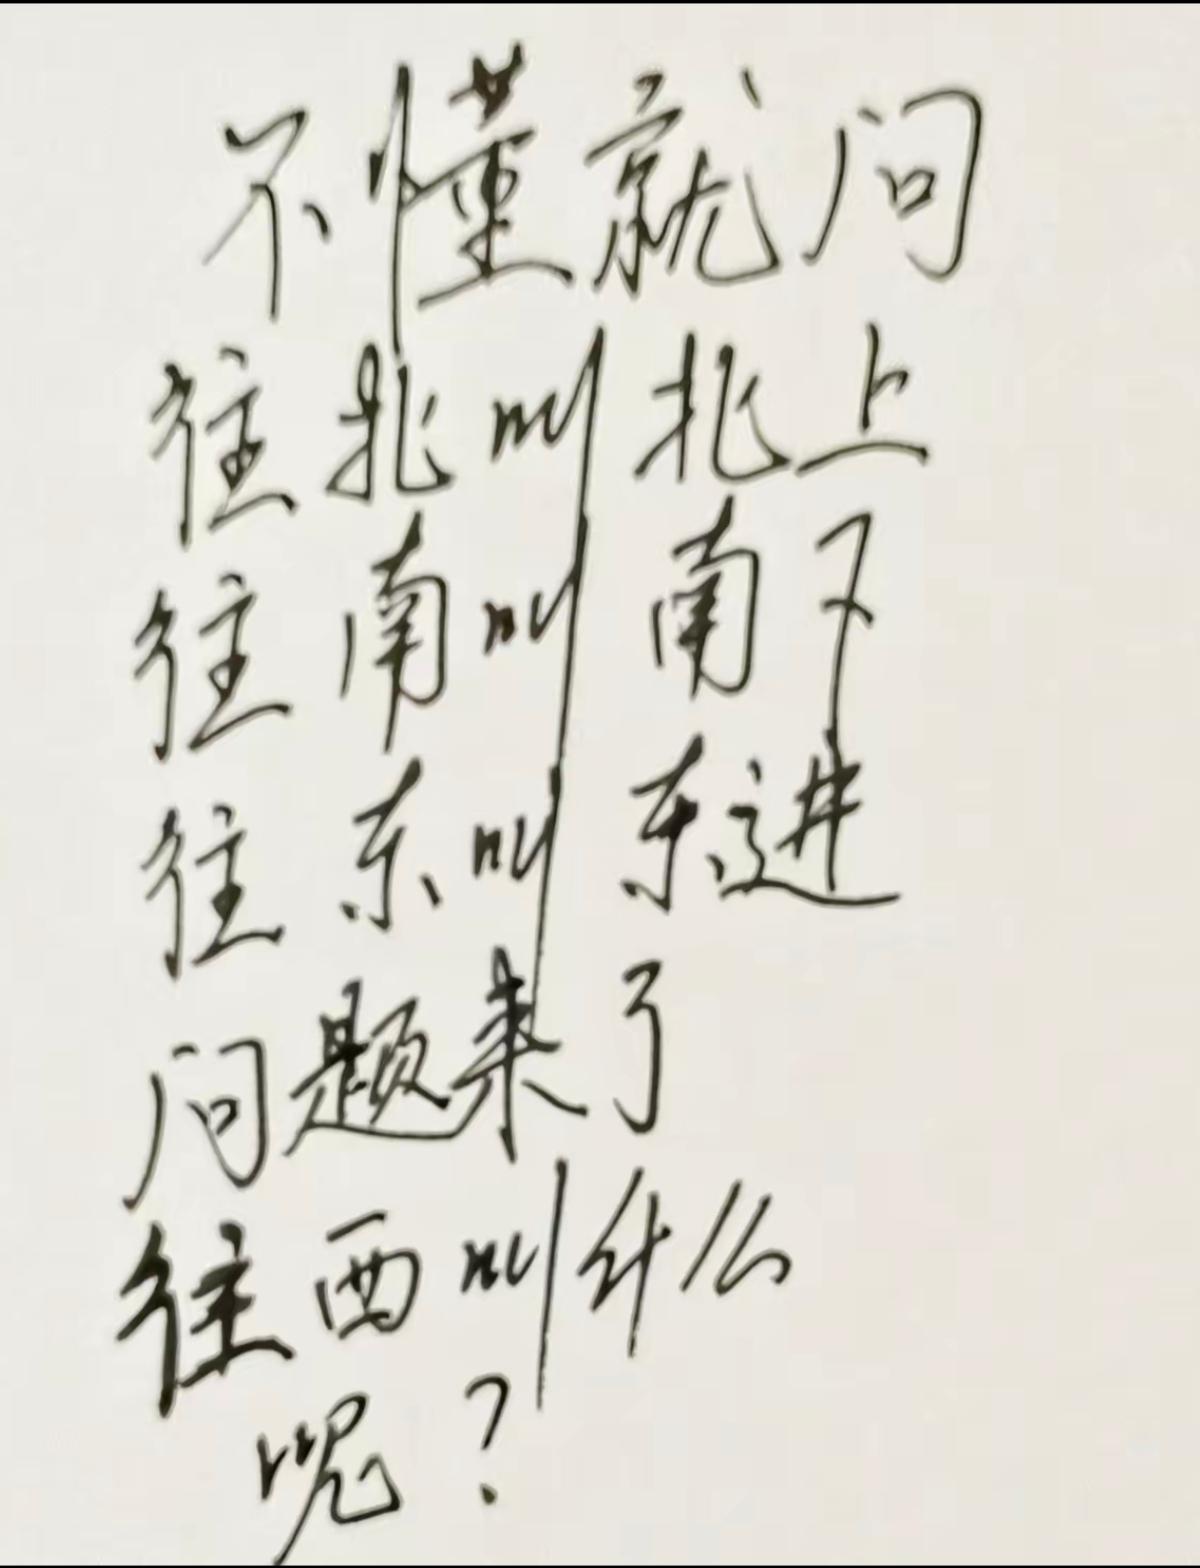 不懂就问
往北叫北上
往南叫南下
往东叫东进
问题来了
往西叫什么
呢？